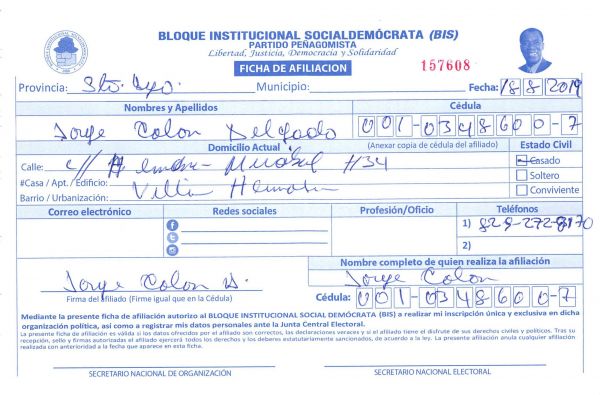 BLOQUE INSTITUCIONAL SOCIALDEMÓCRATA (BIS)
PARTIDO PEÑAGOMISTA
Libertad, Justicia, Democracia y Solidaridad
FICHA DE AFILIACION
157608
Provincia: Sto. Dgo. Municipio: Fecha: 18/8/2019
Nombres y Apellidos Cédula
Jorge Colon Delgado 001-0348600-7
Domicilio Actual (Anexar copia de cédula del afiliado) Estado Civil
Calle: c/ #34
Casado
#Casa / Apt. / Edificio: Soltero
Barrio / Urbanización: Villa Hermosa Conviviente
Correo electrónico Redes sociales Profesión/Oficio Teléfonos
1) 829-272-8170
2)
Nombre completo de quien realiza la afiliación
Jorge Colon D. Jorge Colon
Firma del afiliado (Firme igual que en la Cédula) Cédula: 001-0348600-7
Mediante la presente ficha de afiliación autorizo al BLOQUE INSTITUCIONAL SOCIAL DEMÓCRATA (BIS) a realizar mi inscripción única y exclusiva en dicha
organización política, así como a registrar mis datos personales ante la Junta Central Electoral.
La presente ficha de afiliación es válida si los datos ofrecidos por el afiliado son correctos, las declaraciones veraces y si el afiliado tiene el disfrute de sus derechos civiles y políticos. Tras su
recepción, sello y firmas autorizadas el afiliado ejercerá todos los derechos y los deberes estatutariamente sancionados, de acuerdo a la ley. La presente afiliación anula cualquier afiliación
realizada con anterioridad a la fecha que aparece en esta ficha.
SECRETARIO NACIONAL DE ORGANIZACIÓN SECRETARIO NACIONAL ELECTORAL